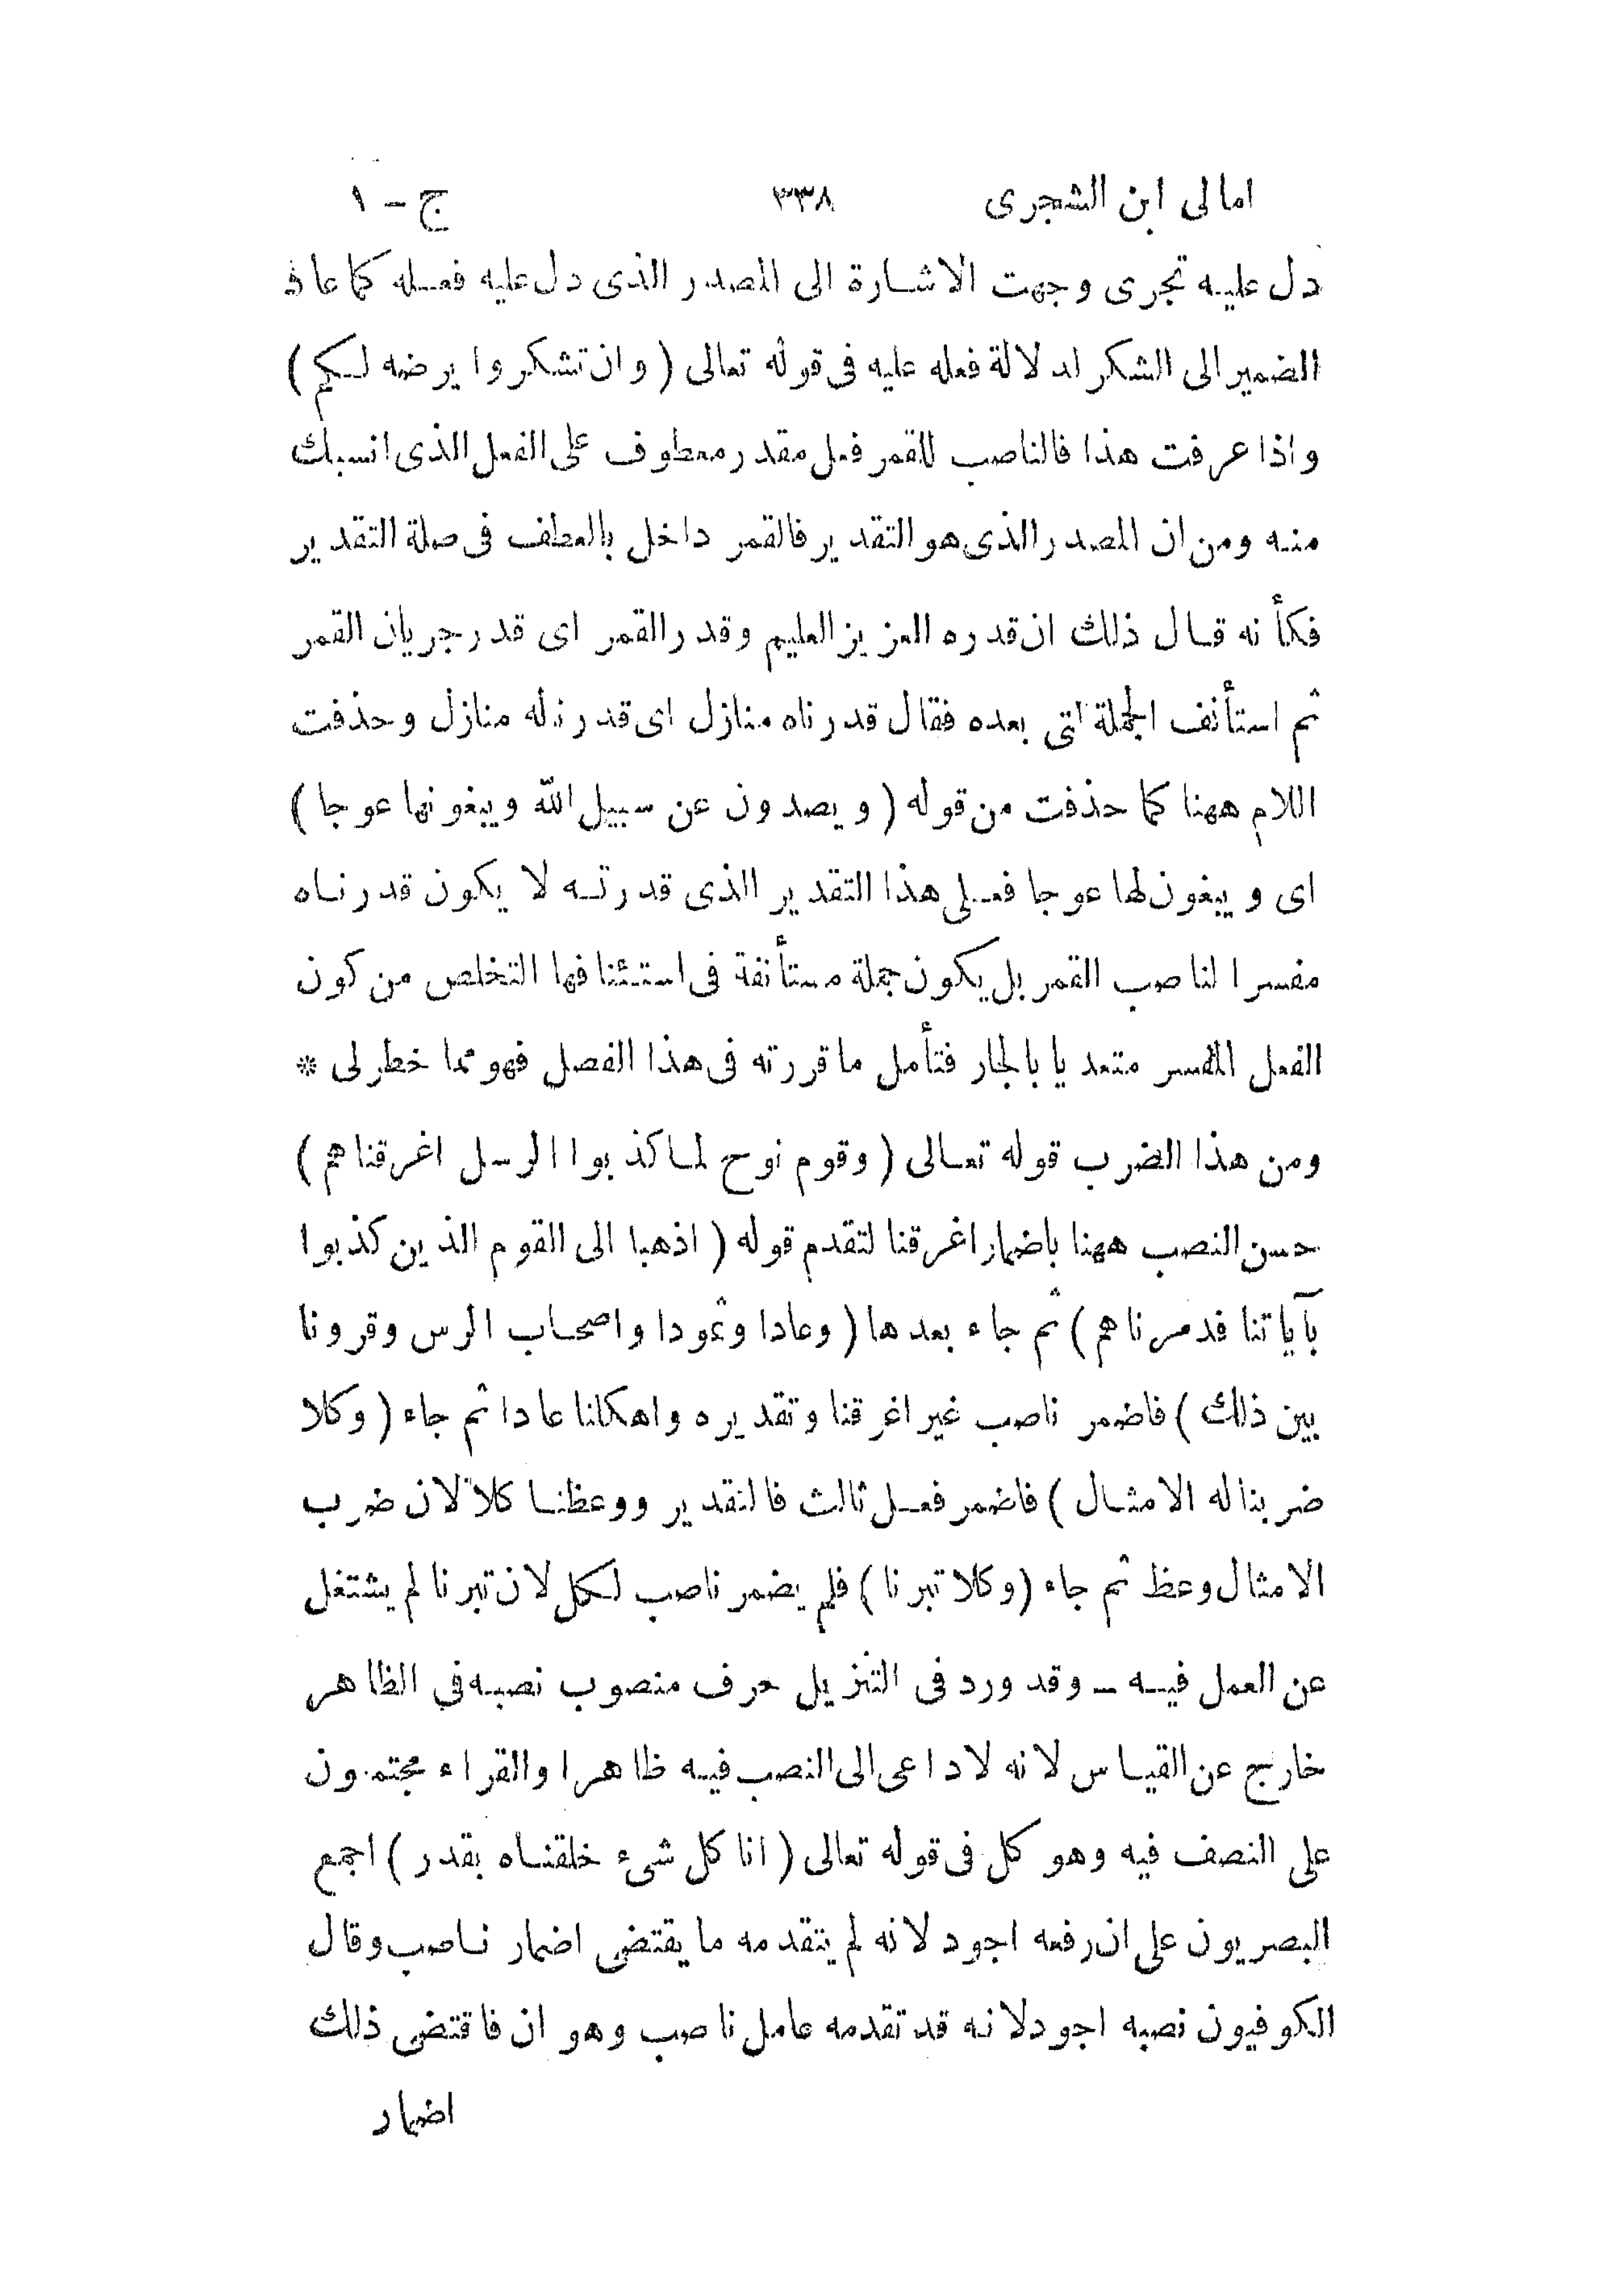 امالى ابن الشجرى ٣٣٨ ج - ١
دل عليه تجرى وجهت الاشارة الى المصدر الذى دل عليه فعله كما عاد
الضمير الى الشكر لدلالة فعله عليه فى قوله تعالى ( وان تشكروا يرضه لكم )
واذا عرفت هذا فالناصب للقمر فعل مقدر معطوف على الفعل الذى انسبك
منه ومن ان المصدر الذى هو التقدير فالقمر داخل بالعطف فى صلة التقدير
فكأنه قال ذلك ان قدره العزيز العليم وقدر القمر اى قدر جريان القمر
ثم استأنف الجملة التى بعده فقال قدرناه منازل اى قدرنا له منازل وحذفت
اللام ههنا كما حذفت من قوله ( ويصدون عن سبيل الله ويبغونها عوجا )
اى ويبغون لها عوجا فعلى هذا التقدير الذى قدرته لا يكون قدرناه
مفسرا لناصب القمر بل يكون جملة مستأنفة فى استئنافها التخلص من كون
الفعل المفسر متعديا بالجار فتأمل ما قررته فى هذا الفصل فهو مما خطر لى *
ومن هذا الضرب قوله تعالى ( وقوم نوح لما كذبوا الرسل اغرقناهم )
حسن النصب ههنا باضمار اغرقنا لتقدم قوله ( اذهبا الى القوم الذين كذبوا
بآياتنا فدمرناهم ) ثم جاء بعدها ( وعادا وثمودا واصحاب الرس وقرونا
بين ذلك ) فاضمر ناصب غير اغرقنا وتقديره واهكانا عادا ثم جاء ( وكلا
ضربنا له الامثال ) فاضمر فعل ثالث فالتقدير ووعظنا كلا لان ضرب
الامثال وعظ ثم جاء ( وكلا تبرنا ) فلم يضمر ناصب لكل لان تبرنا لم يشتغل
عن العمل فيه - وقد ورد فى التنزيل حرف منصوب نصبه فى الظاهر
خارج عن القياس لانه لا داعى الى النصب فيه ظاهرا والقراء مجتمعون
على النصف فيه وهو كل فى قوله تعالى ( انا كل شىء خلقناه بقدر ) اجمع
البصريون على ان رفعه اجود لانه لم يتقدمه ما يقتضى اضمار ناصب وقال
الكوفيون نصبه اجود لانه قد تقدمه عامل ناصب وهو ان فاقتضى ذلك
اضمار